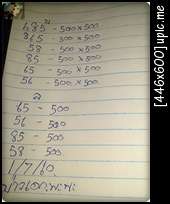 485 - 500×500
365 - 500×500
58 - 500×500
85 - 500×500
65 - 500×500
56 - 500×500
ล
65 - 500
56 - 500
85 - 500
58 - 500
1/7/60
[446x600] upic.me